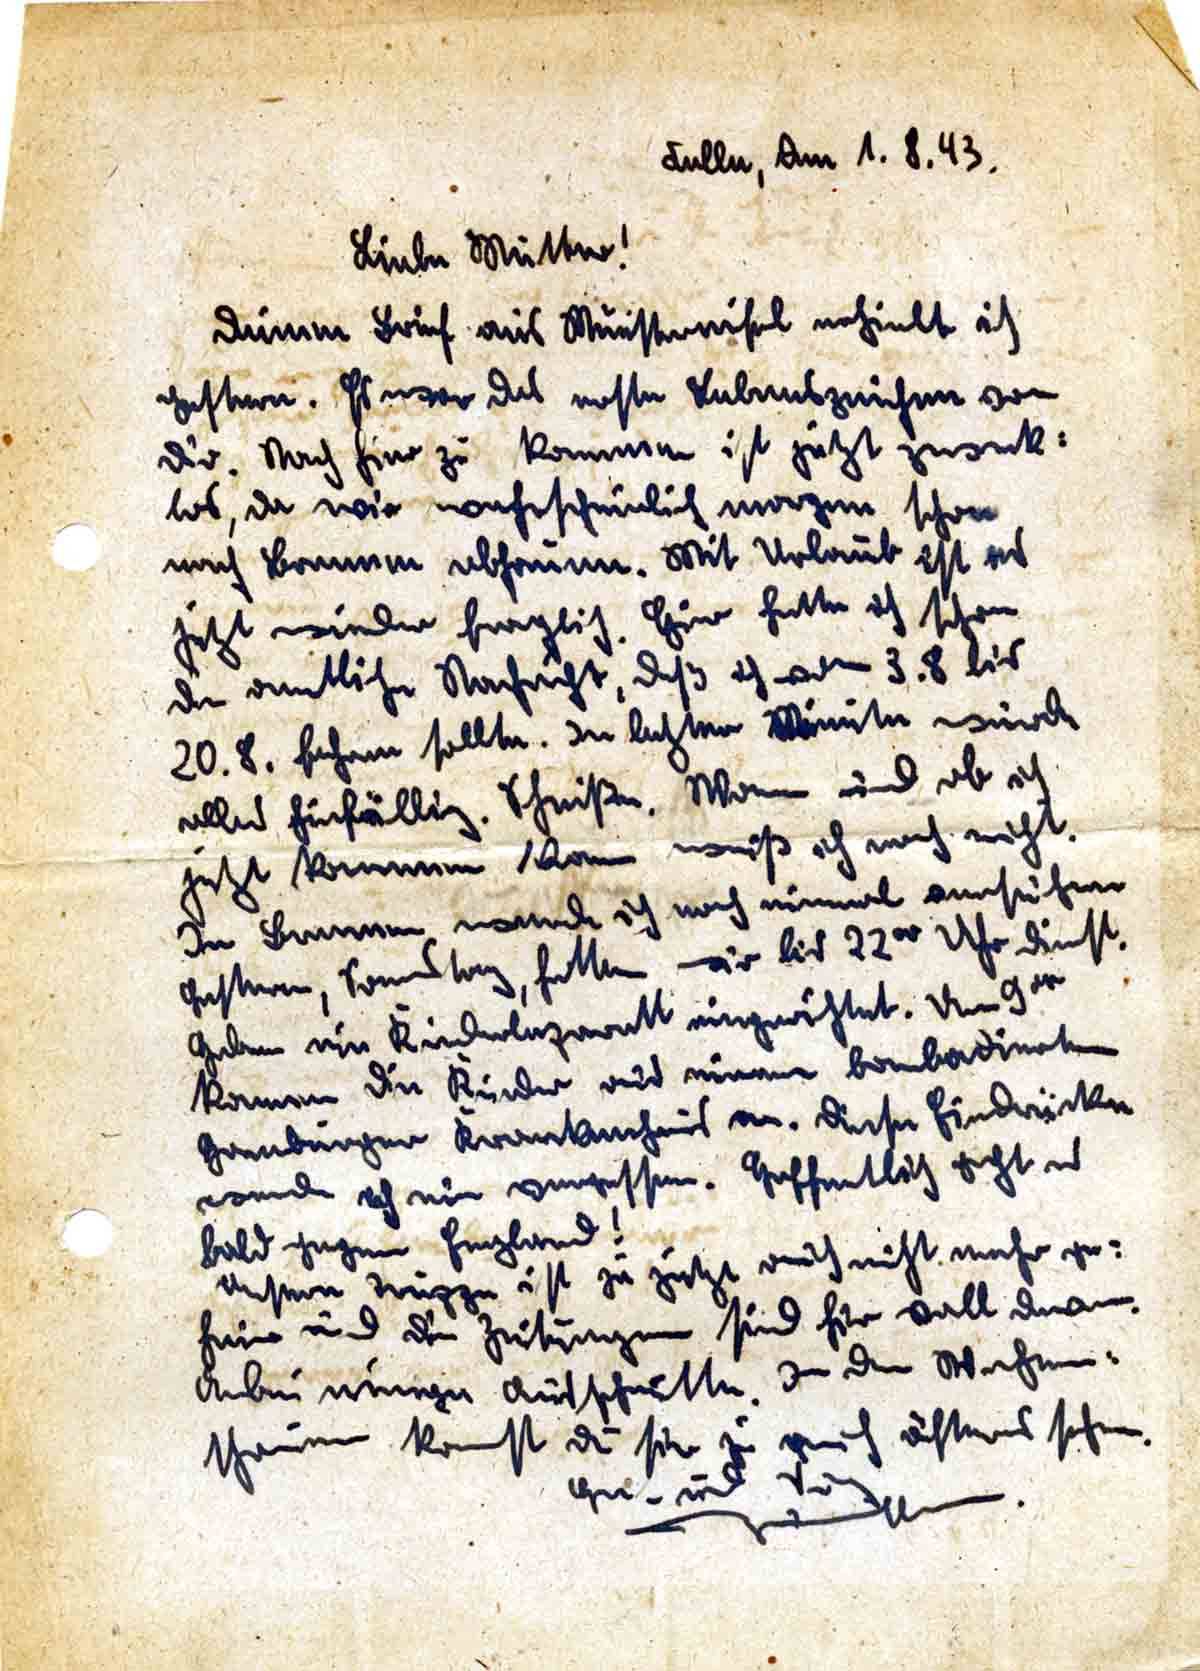 Celle, Am 1. 8. 43.
Liebe Mutter!
Deinen Brief aus Münstereifel erhielt ich
gestern. Es war das erste Lebenszeichen von
Dir. Nach hier zu kommen ist jetzt zweck:
los, da wir wahrscheinlich morgen schon
nach Bremen abhauen. Mit Urlaub ist es
jetzt wieder fraglich. Hier hatte ich schon
die amtliche Nachricht, daß ich vom 3.8 bis
20.8. fahren sollte. In letzter Minute wurde
alles hinfällig. Scheiße. Wann und ob ich
jetzt kommen kann weiß ich noch nicht.
In Bremen werde ich noch einmal versuchen
Gestern, Samstag, hatten wir bis 22°° Uhr Dienst.
Haben ein Kinderlazarett eingerichtet. Um 9°°
kamen die Kinder aus einem bombadierten
Hamburger Krankenhaus an. Diese Eindrücke
werde ich nie vergessen. Hoffentlich geht es
bald gegen England!
Unsere Truppe ist ja jetzt auch nicht mehr ge:
heim und die Zeitungen sind hir voll davon.
Anbei einige Ausschnitte. In den Wochen:
schauen kannst du sie ja auch öfters sehen.
und